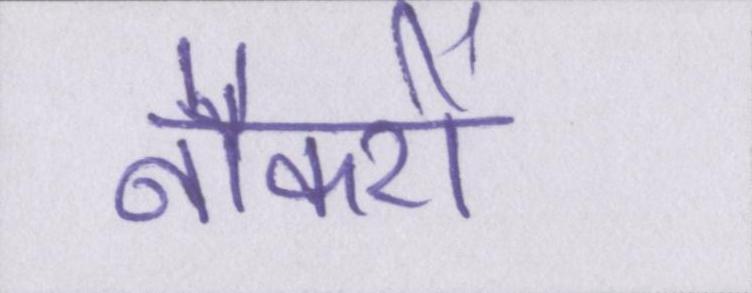 नौकरों